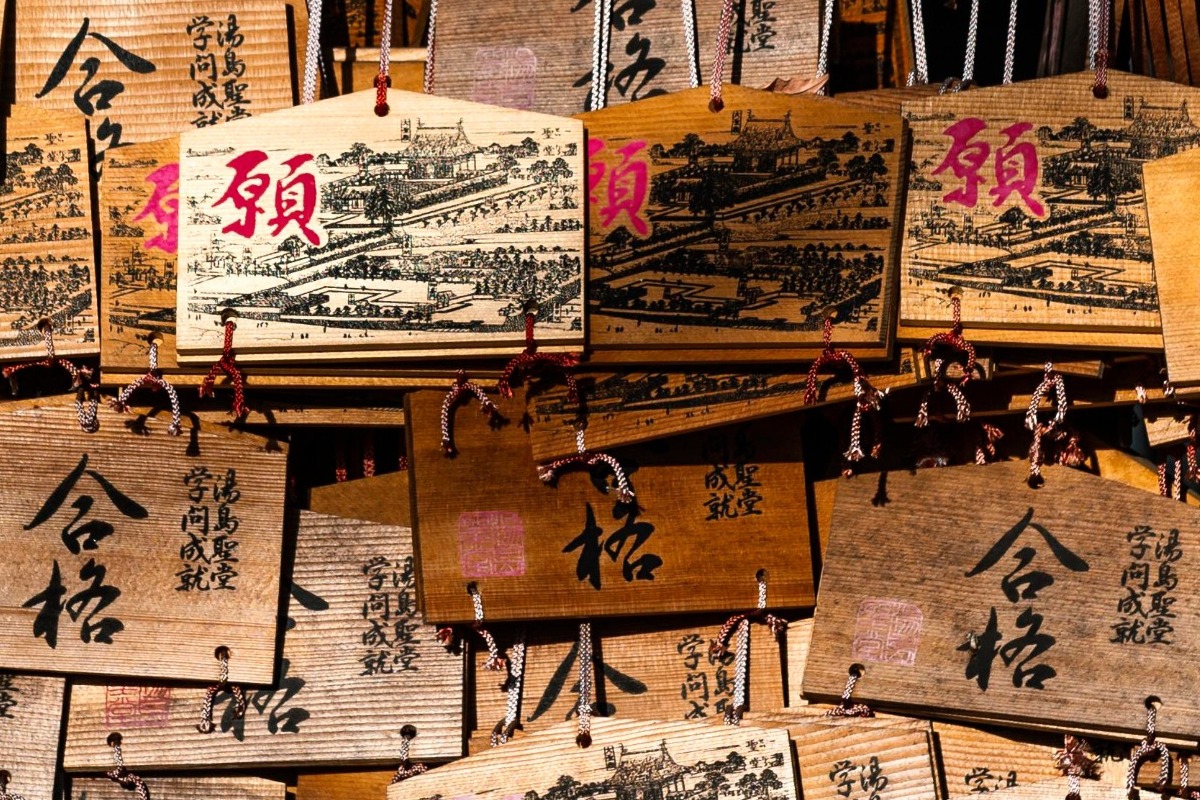 湯島聖堂
学問成就
合
聖堂
格
願
願
願
願
湯島聖堂
学問成就
合格
湯島聖堂
学問成就
格
聖堂
成就
格
湯島聖堂
学問成就
合格
湯島聖
学問成
合
湯島
学問
湯
学